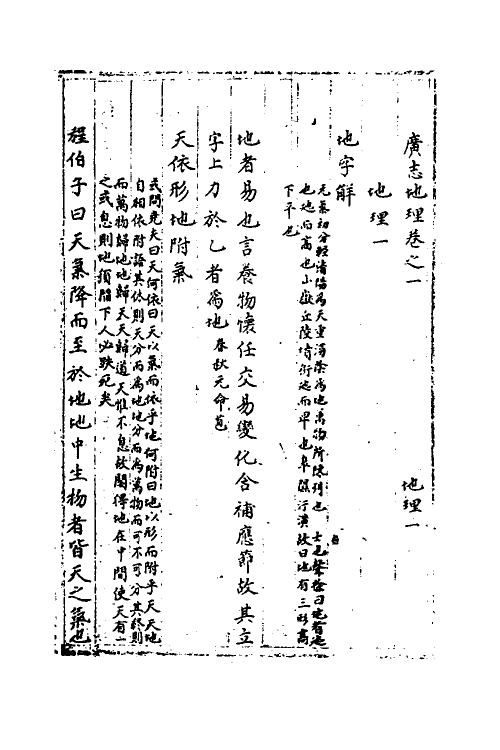 廣志地理卷之一 地理一
地理一
地字解
元氣初分輕清陽為天重濁陰為地萬物所陳列也 士
也地而高也山嶽丘陵 而卑也 故曰地有三形高
下平也
地者易也言養物懷任交易變化含補應節故其立
字上力於乙者為地 春秋元命苞
天依形地附氣
或問堯夫曰天何依曰天以氣而依乎地何附曰地以形而附乎天天地
自相依附語其體則天分而為地地分而為萬物而可不可分其終則
而萬物歸地地歸天天歸道天惟不息故閣得地在中間使天有一
之或息則地須陷下人必跌死矣
程伯子曰天氣降而至於地地中生物者皆天之氣也